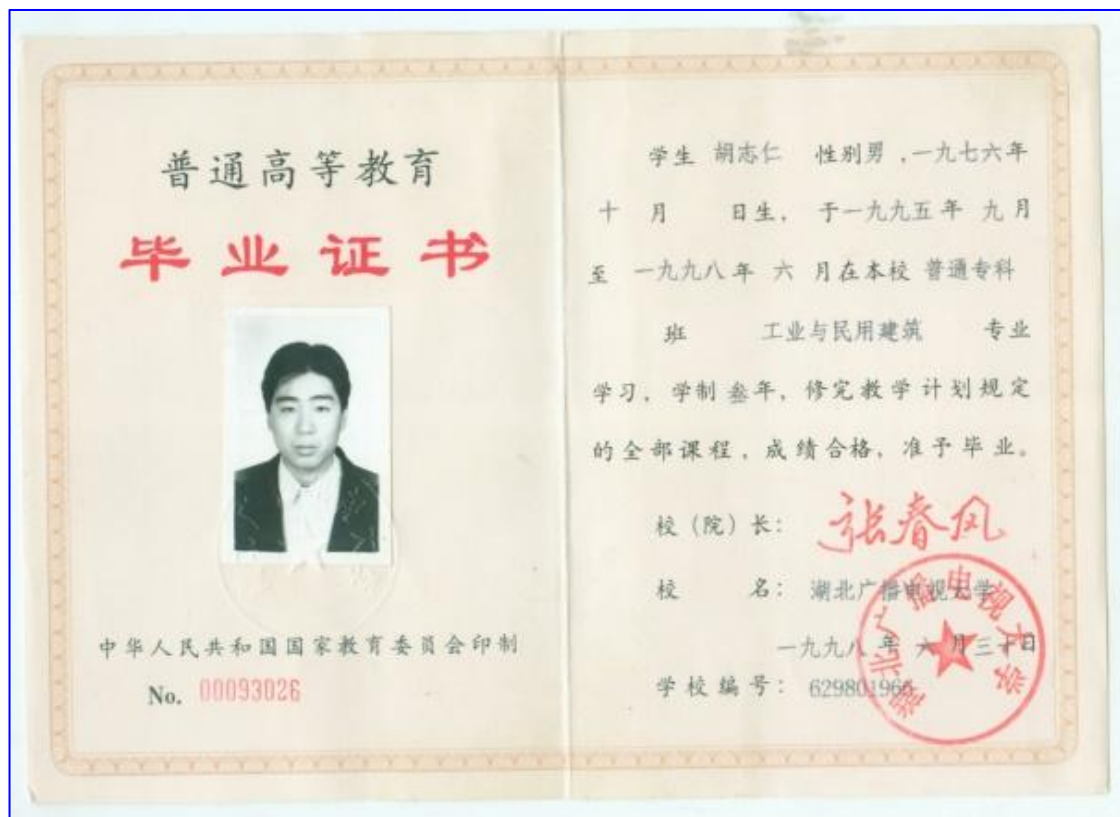 普通高等教育
毕业证书
中华人民共和国国家教育委员会印制
No. 00093026
学生 胡志仁 性别男，一九七六年
十 月 日生，于一九九五年 九月
至 一九九八年 六 月在本校 普通专科
班 工业与民用建筑 专业
学习，学制叁年，修完教学计划规定
的全部课程，成绩合格，准予毕业。
校（院）长： 张春风
校 名： 湖北广播电视大学
一九九八年 六月三十日
学校编号： 629801966
湖北广播电视大学